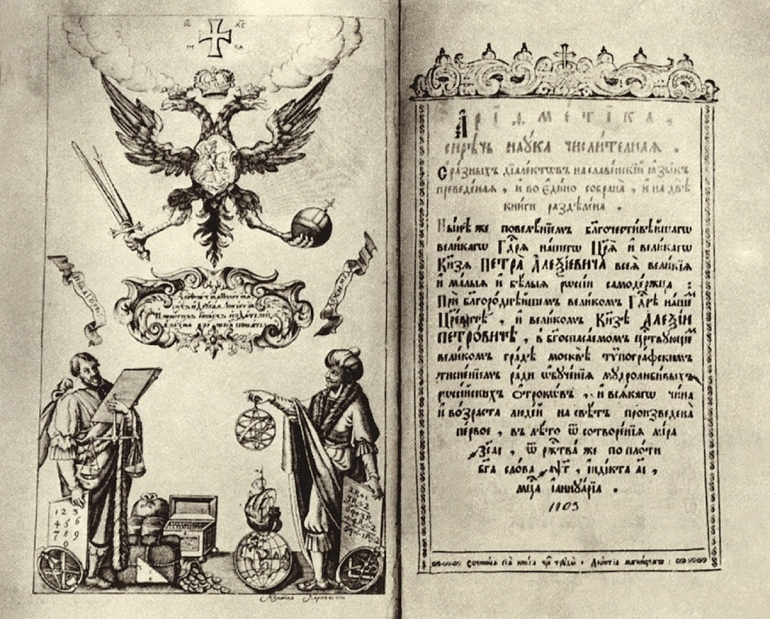 ІС ХС
НИ КА
ПИѲАГОРЪ
АРХИМЕДЪ
1 2 3
4 5 6
7 8 9
Арїѳметїка,
сирѣчь наука числителная.
С̾ разныхъ дїалектѡвъ на славенскїй ѧзыкъ
преведеная, и во едино собрана, и на двѣ
книги раздѣлена.
Нн҃ѣ же повелѣнїемъ благочестивѣйшагѡ
великагѡ Гдⷭ҇рѧ нашегѡ Цр҃ѧ и великагѡ
Кн҃зѧ ПЕТРА АЛЕѮЇЕВИЧА всеѧ великїѧ
и малыѧ и бѣлыѧ рѡссїи самодержца:
При благороднѣйшемъ великомъ Гдⷭ҇рѣ нашемъ
Цр҃евичѣ, и великомъ Кн҃зѣ АЛЕѮЇИ
ПЕТРОВИЧѢ, в бг҃оспасаемомъ царствующемъ
великомъ градѣ москвѣ тѵпографскимъ
тисненїемъ ради ѡбученїѧ мудролюбивыхъ
рѡссїйскихъ отрокѡвъ, и всѧкагѡ чина
и возраста людей на свѣтъ произведена
первое, въ лѣто ѿ сотворенїѧ мїра
҂зсаі, ѿ рж҃тва же по плоти
бг҃а слова ҂аѱг, їндїкта аі,
мцⷭ҇а їаннуарїа.
1703
Сочинисѧ сїѧ книга чрез̾ труды Леѡнтїа магницкагѡ: